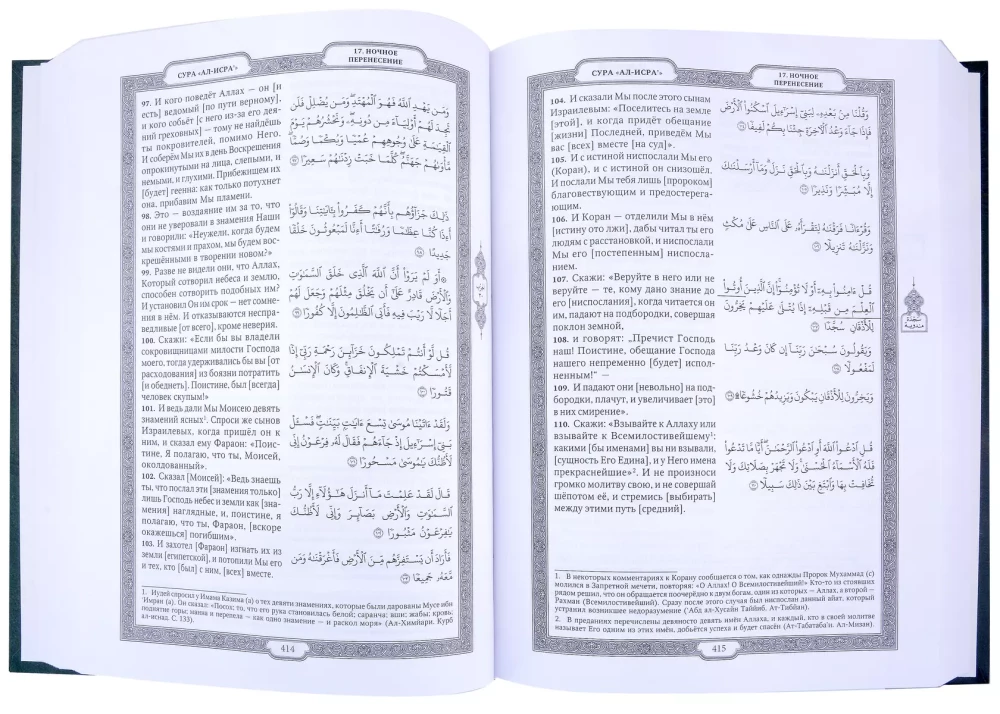 СУРА «АЛ-ИСРА’»
17. НОЧНОЕ
ПЕРЕНЕСЕНИЕ
97. И кого поведёт Аллах — он [и
есть] ведомый [по пути верному],
и кого собьёт [с него из-за его дея-
ний греховных] — тому не найдёшь
ты покровителей, помимо Него.
И соберём Мы их в день Воскрешения
опрокинутыми на лица, слепыми, и
немыми, и глухими. Прибежищем их
[будет] геенна: как только потухнет
она, прибавим Мы пламени.
98. Это — воздаяние им за то, что
они не уверовали в знамения Наши
и говорили: «Неужели, когда будем
мы костями и прахом, мы будем вос-
крешёнными в творении новом?»
99. Разве не видели они, что Аллах,
Который сотворил небеса и землю,
способен сотворить подобных им?
И установил Он им срок — нет сомне-
ния в нём. И отказываются неспра-
ведливые [от всего], кроме неверия.
100. Скажи: «Если бы вы владели
сокровищницами милости Господа
моего, тогда удерживались бы вы [от
расходования] из боязни потратить
[и обеднеть]. Поистине, был [всегда]
человек скупым!»
101. И ведь дали Мы Моисею девять
знамений ясных¹. Спроси же сынов
Израилевых, когда пришёл он к
ним, и сказал ему Фараон: «Поис-
тине, Я полагаю, что ты, Моисей,
околдованный».
102. Сказал [Моисей]: «Ведь знаешь
ты, что послал эти [знамения только]
лишь Господь небес и земли как [зна-
мения] наглядные, и, поистине, я
полагаю, что ты, Фараон, [вскоре
окажешься] погибшим».
103. И захотел [Фараон] изгнать их из
земли [египетской], и потопили Мы его
и тех, кто [был] с ним, [всех] вместе.
وَمَن يَهْدِ ٱللَّهُ فَهُوَ ٱلْمُهْتَدِ ۖ وَمَن يُضْلِلْ فَلَن
تَجِدَ لَهُمْ أَوْلِيَآءَ مِن دُونِهِۦ ۖ وَنَحْشُرُهُمْ يَوْمَ
ٱلْقِيَٰمَةِ عَلَىٰ وُجُوهِهِمْ عُمْيًا وَبُكْمًا وَصُمًّا ۖ
مَّأْوَىٰهُمْ جَهَنَّمُ ۖ كُلَّمَا خَبَتْ زِدْنَٰهُمْ سَعِيرًا ٩٧
ذَٰلِكَ جَزَآؤُهُم بِأَنَّهُمْ كَفَرُوا۟ بِـَٔايَٰتِنَا وَقَالُوٓا۟
أَءِذَا كُنَّا عِظَٰمًا وَرُفَٰتًا أَءِنَّا لَمَبْعُوثُونَ خَلْقًا
جَدِيدًا ٩٨
۞ أَوَلَمْ يَرَوْا۟ أَنَّ ٱللَّهَ ٱلَّذِى خَلَقَ ٱلسَّمَٰوَٰتِ
وَٱلْأَرْضَ قَادِرٌ عَلَىٰٓ أَن يَخْلُقَ مِثْلَهُمْ وَجَعَلَ لَهُمْ
أَجَلًا لَّا رَيْبَ فِيهِ فَأَبَى ٱلظَّٰلِمُونَ إِلَّا كُفُورًا ٩٩
قُل لَّوْ أَنتُمْ تَمْلِكُونَ خَزَآئِنَ رَحْمَةِ رَبِّىٓ إِذًا
لَّأَمْسَكْتُمْ خَشْيَةَ ٱلْإِنفَاقِ ۚ وَكَانَ ٱلْإِنسَٰنُ
قَتُورًا ١٠٠
وَلَقَدْ ءَاتَيْنَا مُوسَىٰ تِسْعَ ءَايَٰتٍۭ بَيِّنَٰتٍ ۖ فَسْـَٔلْ
بَنِىٓ إِسْرَٰٓءِيلَ إِذْ جَآءَهُمْ فَقَالَ لَهُۥ فِرْعَوْنُ إِنِّى
لَأَظُنُّكَ يَٰمُوسَىٰ مَسْحُورًا ١٠١
قَالَ لَقَدْ عَلِمْتَ مَآ أَنزَلَ هَٰٓؤُلَآءِ إِلَّا رَبُّ
ٱلسَّمَٰوَٰتِ وَٱلْأَرْضِ بَصَآئِرَ وَإِنِّى لَأَظُنُّكَ
يَٰفِرْعَوْنُ مَثْبُورًا ١٠٢
فَأَرَادَ أَن يَسْتَفِزَّهُم مِّنَ ٱلْأَرْضِ فَأَغْرَقْنَٰهُ وَمَن
مَّعَهُۥ جَمِيعًا ١٠٣
1. Йудей спросил у Имама Казима (а) о тех девяти знамениях, которые были дарованы Мусе ибн
‘Имран (а). Он сказал: «Посох; то, что его рука становилась белой; саранча; вши; жабы; кровь;
поднятие горы; манна и перепела — как одно знамение — и раскол моря» (Ал-Химйари. Курб
ал-иснад. С. 133).
414
СУРА «АЛ-ИСРА’»
17. НОЧНОЕ
ПЕРЕНЕСЕНИЕ
104. И сказали Мы после этого сынам
Израилевым: «Поселитесь на земле
[этой], и когда придёт обещание
[жизни] Последней, приведём Мы
вас [всех] вместе [на суд]».
105. И с истиной ниспослали Мы его
(Коран), и с истиной он снизошёл.
И послали Мы тебя лишь [пророком]
благовествующим и предостерега-
ющим.
106. И Коран — отделили Мы в нём
[истину ото лжи], дабы читал ты его
людям с расстановкой, и ниспослали
Мы его [постепенным] ниспосла-
нием.
107. Скажи: «Веруйте в него или не
веруйте — те, кому дано знание до
его [ниспослания], когда читается он
им, падают на подбородки, совершая
поклон земной,
108. и говорят: „Пречист Господь
наш! Поистине, обещание Господа
нашего непременно [будет] испол-
ненным!“ —
109. И падают они [невольно] на под-
бородки, плачут, и увеличивает [это]
в них смирение».
110. Скажи: «Взывайте к Аллаху или
взывайте к Всемилостивейшему¹;
какими [бы именами] вы ни взывали,
[сущность Его Едина], и у Него имена
прекраснейшие»². И не произноси
громко молитву свою, и не совершай
шёпотом её, и стремись [выбирать]
между этими путь [средний].
وَقُلْنَا مِنۢ بَعْدِهِۦ لِبَنِىٓ إِسْرَٰٓءِيلَ ٱسْكُنُوا۟ ٱلْأَرْضَ
فَإِذَا جَآءَ وَعْدُ ٱلْءَاخِرَةِ جِئْنَا بِكُمْ لَفِيفًا ١٠٤
وَبِٱلْحَقِّ أَنزَلْنَٰهُ وَبِٱلْحَقِّ نَزَلَ ۗ وَمَآ أَرْسَلْنَٰكَ
إِلَّا مُبَشِّرًا وَنَذِيرًا ١٠٥
وَقُرْءَانًا فَرَقْنَٰهُ لِتَقْرَأَهُۥ عَلَى ٱلنَّاسِ عَلَىٰ مُكْثٍ
وَنَزَّلْنَٰهُ تَنزِيلًا ١٠٦
قُلْ ءَامِنُوا۟ بِهِۦٓ أَوْ لَا تُؤْمِنُوٓا۟ ۚ إِنَّ ٱلَّذِينَ أُوتُوا۟
ٱلْعِلْمَ مِن قَبْلِهِۦٓ إِذَا يُتْلَىٰ عَلَيْهِمْ يَخِرُّونَ
لِلْأَذْقَانِ سُجَّدًا ١٠٧
وَيَقُولُونَ سُبْحَٰنَ رَبِّنَآ إِن كَانَ وَعْدُ رَبِّنَا
لَمَفْعُولًا ١٠٨
وَيَخِرُّونَ لِلْأَذْقَانِ يَبْكُونَ وَيَزِيدُهُمْ خُشُوعًا ۩ ١٠٩
قُلِ ٱدْعُوا۟ ٱللَّهَ أَوِ ٱدْعُوا۟ ٱلرَّحْمَٰنَ ۖ أَيًّا مَّا تَدْعُوا۟
فَلَهُ ٱلْأَسْمَآءُ ٱلْحُسْنَىٰ ۚ وَلَا تَجْهَرْ بِصَلَاتِكَ وَلَا
تُخَافِتْ بِهَا وَٱبْتَغِ بَيْنَ ذَٰلِكَ سَبِيلًا ١١٠
سجدة
مندوبة
1. В некоторых комментариях к Корану сообщается о том, как однажды Пророк Мухаммад (с)
молился в Запретной мечети, повторяя: «О Аллах! О Всемилостивейший!» Кто-то из стоявших
рядом решил, что он обращается поочерёдно к двум богам, один из которых — Аллах, а второй —
Рахман (Всемилостивейший). Сразу после этого случая был ниспослан данный айат, который
устранил возникшее недоразумение (‘Абд ал-Хусайн Таййиб. Ат-Тиббан).
2. В преданиях перечислены девяносто девять имён Аллаха, и каждый, кто в своей молитве
называет Его одним из этих имён, добьётся успеха и будет спасён (Ат-Табатаба’и. Ал-Мизан).
415